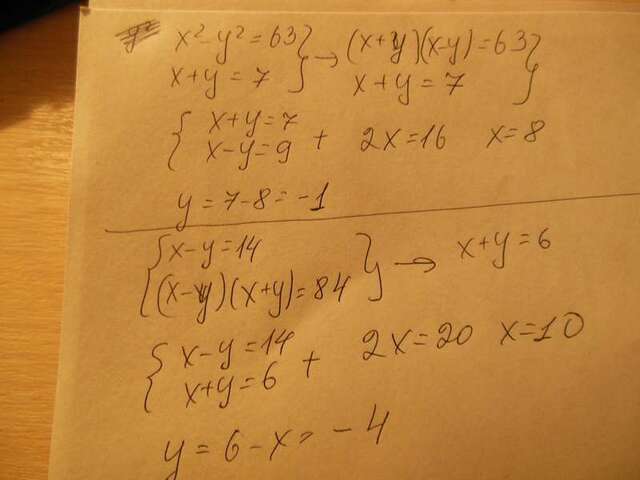 x² - y² = 63 } → (x+y)(x-y) = 63 }
x+y = 7 x+y = 7
{ x+y = 7
x-y = 9 + 2x = 16 x = 8
y = 7-8 = -1
{ x-y = 14 } → x+y = 6
(x-y)(x+y) = 84
{ x-y = 14
x+y = 6 + 2x = 20 x = 10
y = 6-x = -4